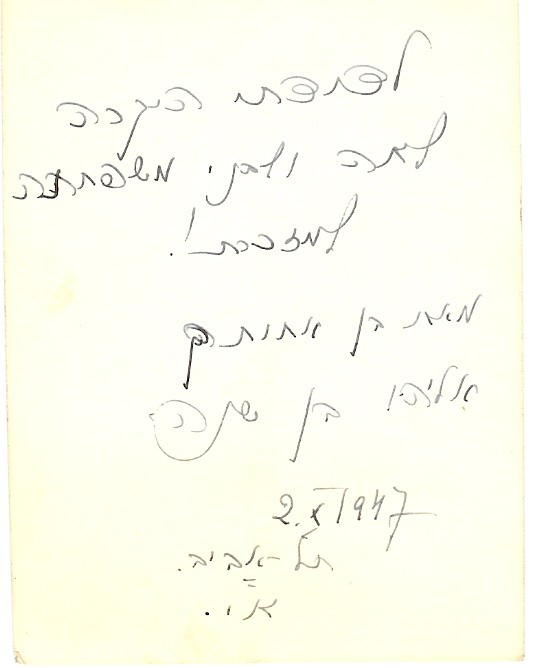 לדודתי היקרה
לאה ולבני משפחתה
למזכרת!
מאת בן אחותך
אליהו בן שרה
2.X 1947
תל-אביב.
א"י.